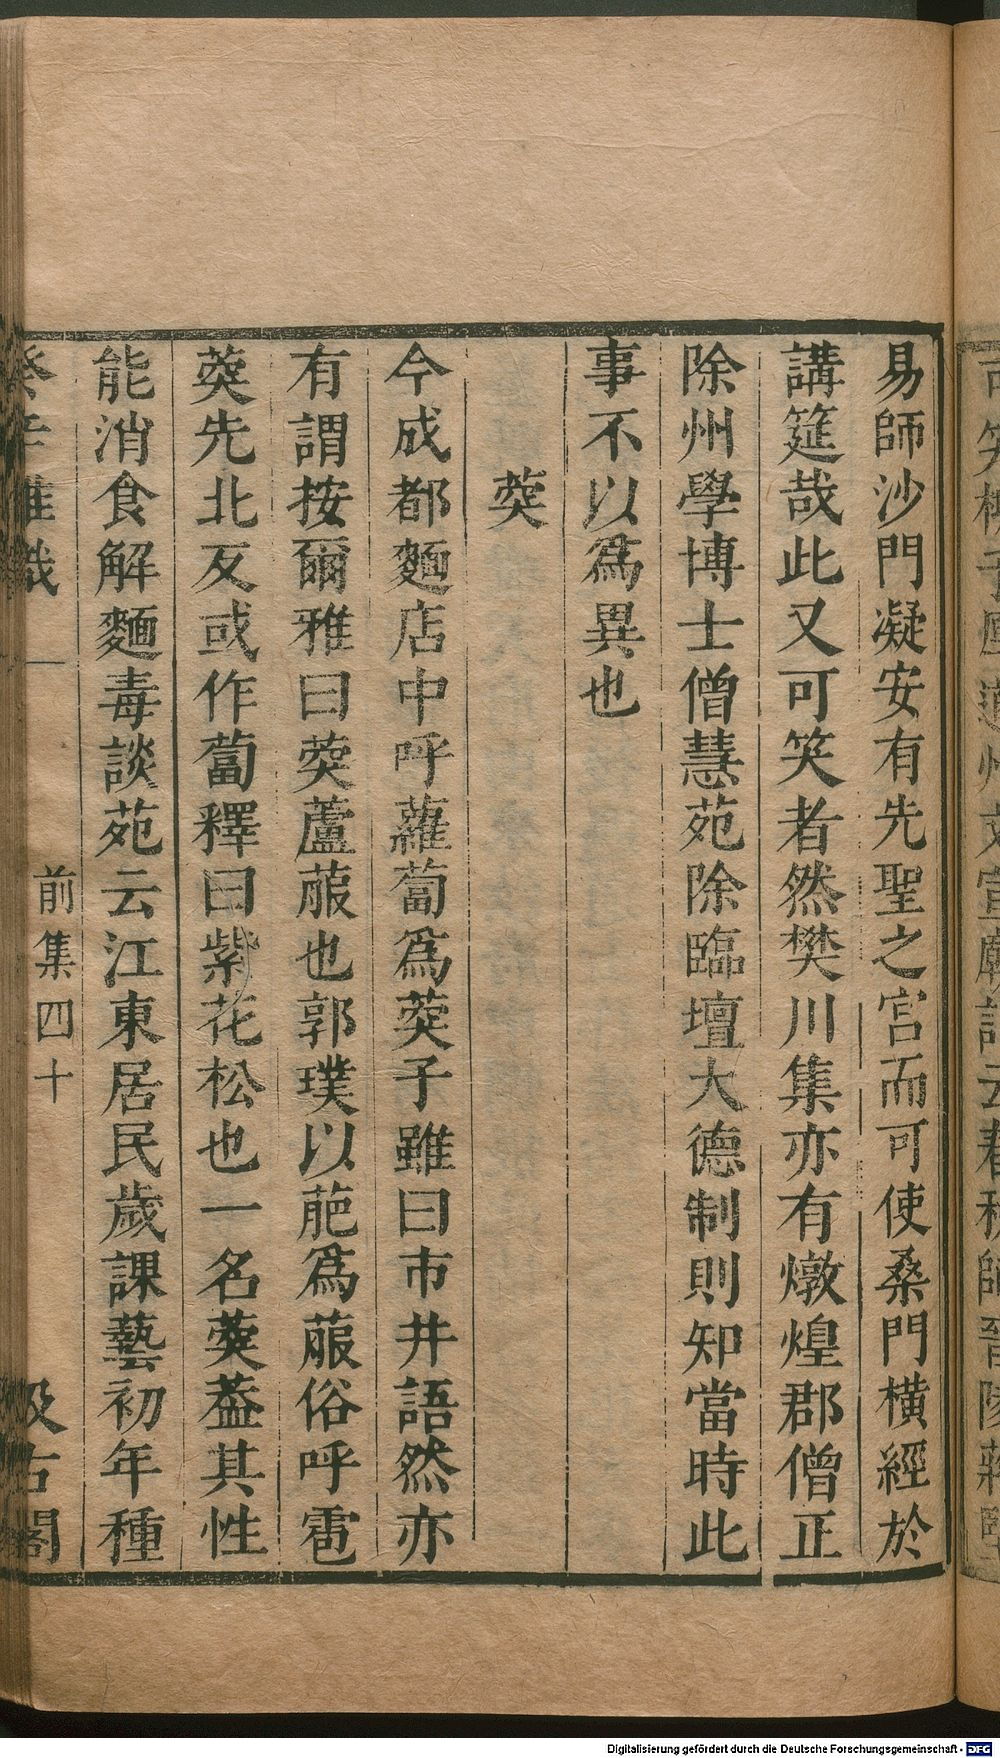 易師沙門凝安有先聖之宮而可使桑門橫經於
講筵哉此又可笑者然樊川集亦有燉煌郡僧正
除州學博士僧慧苑除臨壇大德制則知當時此
事不以爲異也
葖
今成都麵店中呼蘿蔔爲葖子雖曰市井語然亦
有謂按爾雅曰葖蘆萉也郭璞以萉爲菔俗呼雹
葖先北反或作蔔釋曰紫花松也一名葖蓋其性
能消食解麵毒談苑云江東居民歲課藝初年種
癸辛雜識
前集四十
汲古閣
Digitalisierung gefördert durch die Deutsche Forschungsgemeinschaft - DFG